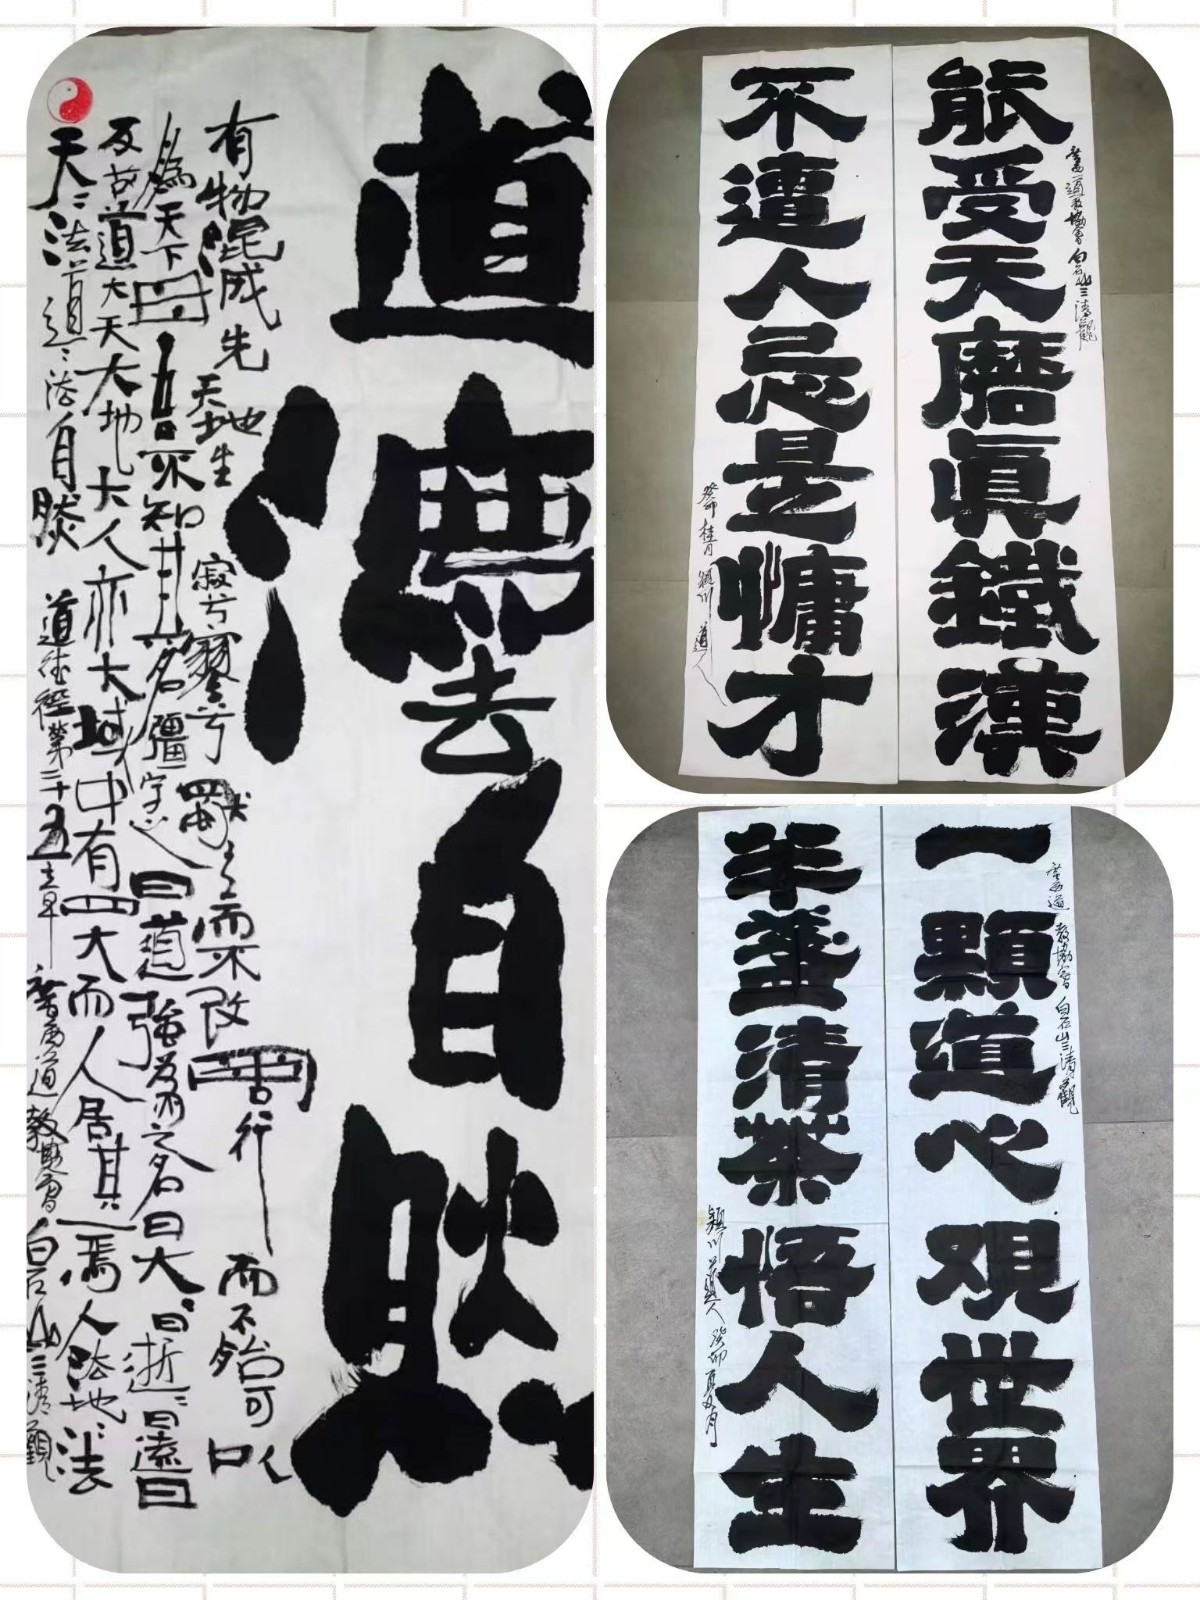 道灋自然
有物混成先天地生寂兮寥兮獨立而不改周行而不殆可以
為天下母吾不知其名彊字之曰道強為之名曰大〻曰逝〻曰遠曰
反故道大天大地大人亦大域中有四大而人居其一焉人法地〻法
天〻法道〻法自然 道德經第二十五章 廣西道教協會白石山三清觀
廣西道教協會白石山三清觀
能受天磨眞鐵漢
不遭人忌是慵才
癸卯桂月 穎川道人
廣西道教協會白石山三清觀
一顆道心观世界
半盞清茶悟人生
穎川道人癸卯夏月